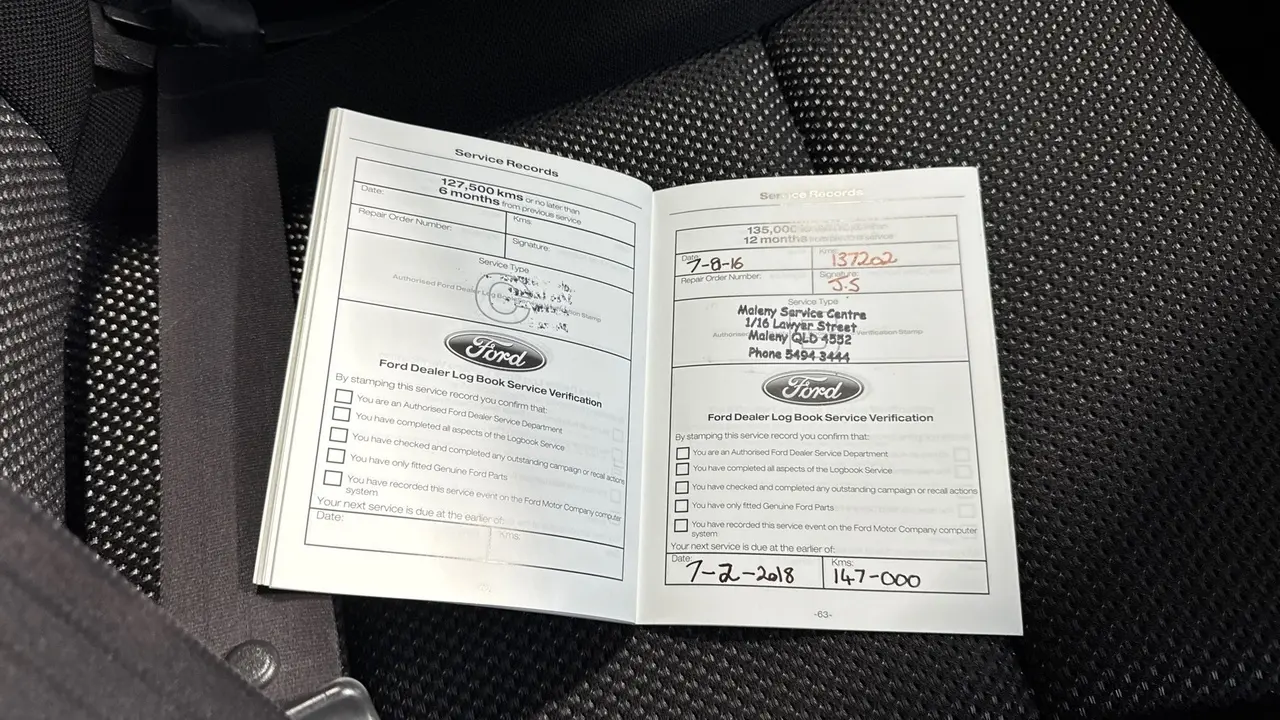 Service Records
127,500 kms or no later than
6 months from previous service
Date:
Kms:
Repair Order Number:
Signature:
Service Type
C
Authorised Ford Dealer Log Book Stamp
Ford
Ford Dealer Log Book Service Verification
By stamping this service record you confirm that:
You are an Authorised Ford Dealer Service Department
You have completed all aspects of the Logbook Service
You have checked and completed any outstanding campaign or recall actions
You have only fitted Genuine Ford Parts
You have recorded this service event on the Ford Motor Company computer
system
Your next service is due at the earlier of:
Date:
Kms:
Service Records
135,000
12 months from previous service
Date:
7-8-16
Kms:
137202
Repair Order Number:
Signature:
J.S
Service Type
Maleny Service Centre
1/16 Lawyer Street
Authorised Verification Stamp
Maleny QLD 4552
Phone 5494 3444
Ford
Ford Dealer Log Book Service Verification
By stamping this service record you confirm that:
You are an Authorised Ford Dealer Service Department
You have completed all aspects of the Logbook Service
You have checked and completed any outstanding campaign or recall actions
You have only fitted Genuine Ford Parts
You have recorded this service event on the Ford Motor Company computer
system
Your next service is due at the earlier of:
Date:
7-2-2018
Kms:
147-000
-63-